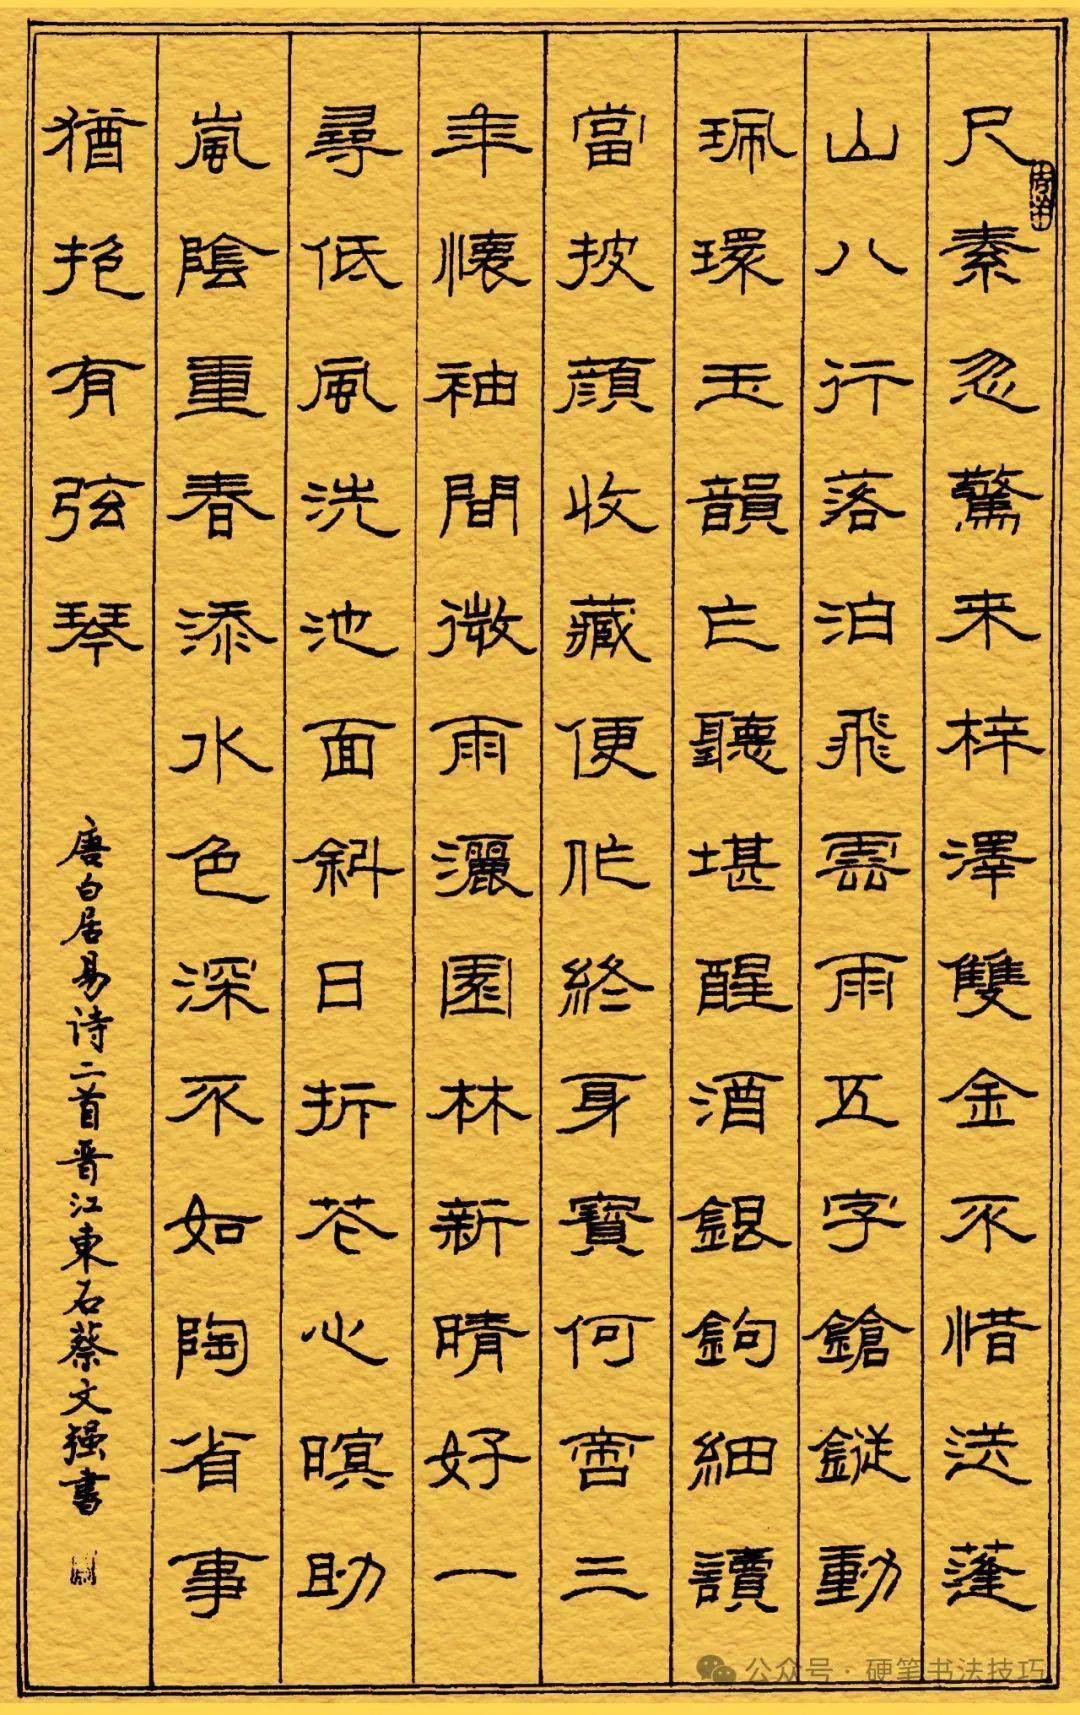 尺素忽驚来梓澤雙金不惜送蓬
山八行落泊飛雲雨五字鎗鏦動
珮環玉韻乍聽堪醒酒銀鉤細讀
當披顔收藏便作終身寶何啻三
年懷袖間微雨灑園林新晴好一
尋低風洗池面斜日拆花心暝助
嵐陰重春添水色深不如陶省事
猶抱有弦琴
唐白居易诗二首晋江東石蔡文强書
公众号·硬笔书法技巧